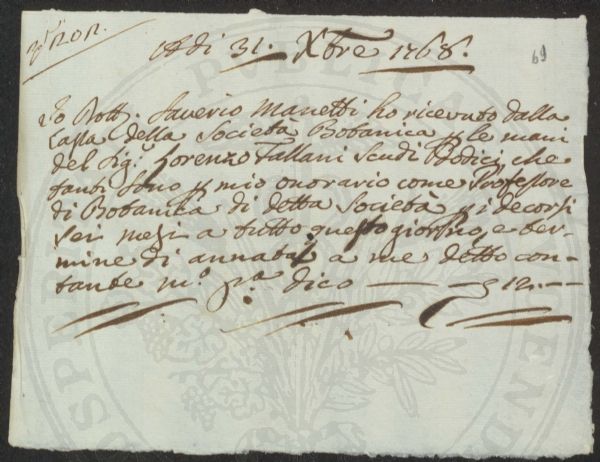 Adi 31. Xbre 1768.
69
Io Dott. Saverio Manetti ho ricevuto dalla
Cassa della Società Botanica p le mani
del Sig.r Lorenzo Fallani Scudi Dodici, che
tanti sono p mio onorario come Professore
di Botanica di detta Società p i decorsi
sei mesi a tutto questo giorno, e ter-
mine di annata a me detto con-
tante m.o p.a dico — — 12. —
PUBLICA
PROSPER